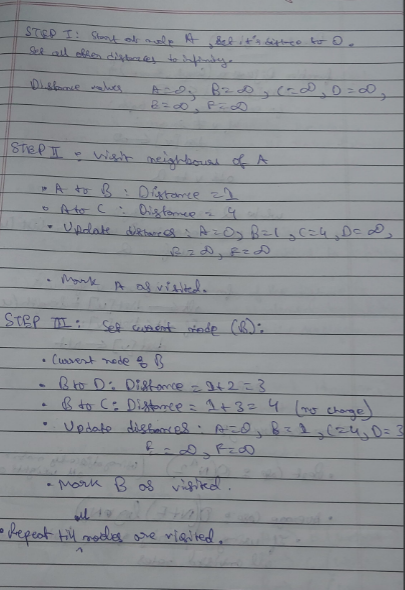 STEP I: Start at node A, Set it's distance to 0.
Set all other distances to infinity.
Distance values A=0, B=∞, C=∞, D=∞,
E=∞, F=∞
STEP II = Visit neighbours of A
• A to B : Distance = 1
• A to C : Distance = 4
• Update distances : A=0, B=1, C=4, D=∞,
E=∞, F=∞
• Mark A as visited.
STEP III: Set current node (B):
• Current node B
• B to D: Distance = 1+2=3
• B to C: Distance = 1+3=4 (no change)
• Update distances: A=0, B=1, C=4, D=3
E=∞, F=∞
• Mark B as visited.
• Repeat till all nodes are visited.